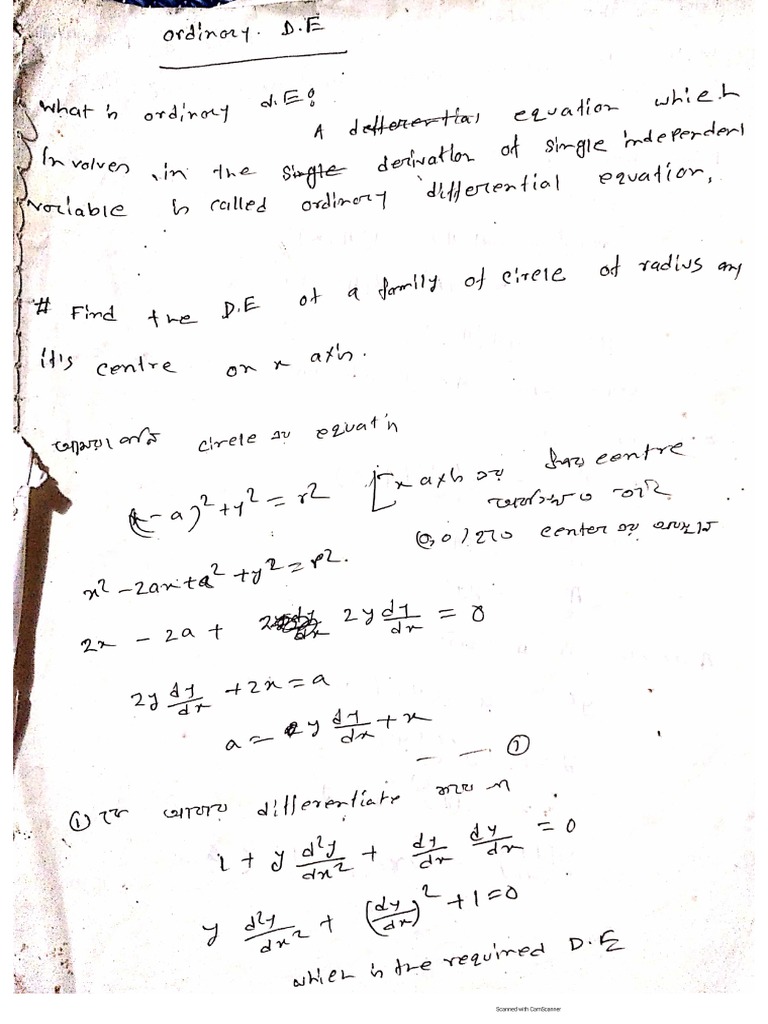 ordinary. D.E
what is ordinary d.E?
A differential equation which
Involves in the derivation of single independent
variable is called ordinary differential equation.
# Find the D.E of a family of circle of radius any
it's centre on x axis.
আমরা জানি circle এর equatn
(x-a)² + y² = r² [x axis এর উপর centre
x² - 2ax + a² + y² = r². (0,0) center
2x - 2a + 2y dy/dx = 0
2y dy/dx + 2x = a
a = y dy/dx + x
— — ①
① কে আবার differentiate করে
1 + y d²y/dx² + dy/dx dy/dx = 0
y d²y/dx² + (dy/dx)² + 1 = 0
which is the required D.E
Scanned with CamScanner